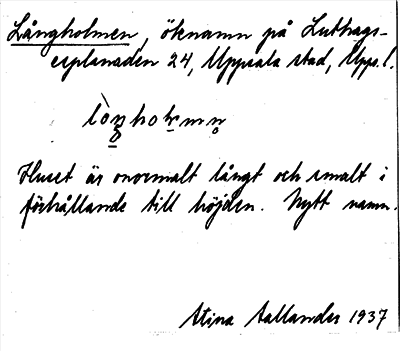 Långholmen, öknamn på Luthags-
esplanaden 24, Uppsala stad, Uppl.
Huset är onormalt långt och smalt i
förhållande till höjden. Nytt namn.
Stina Sallander 1937